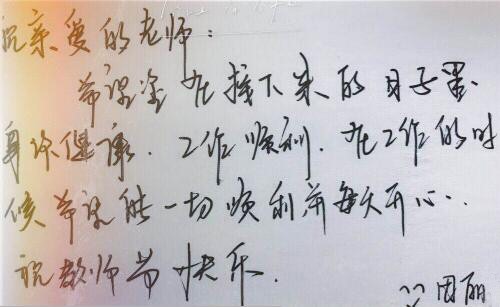 祝亲爱的老师:
希望您在接下来的日子里
身体健康.工作顺利.在工作的时
候希望能一切顺利并每天开心..
祝教师节快乐.
周丽